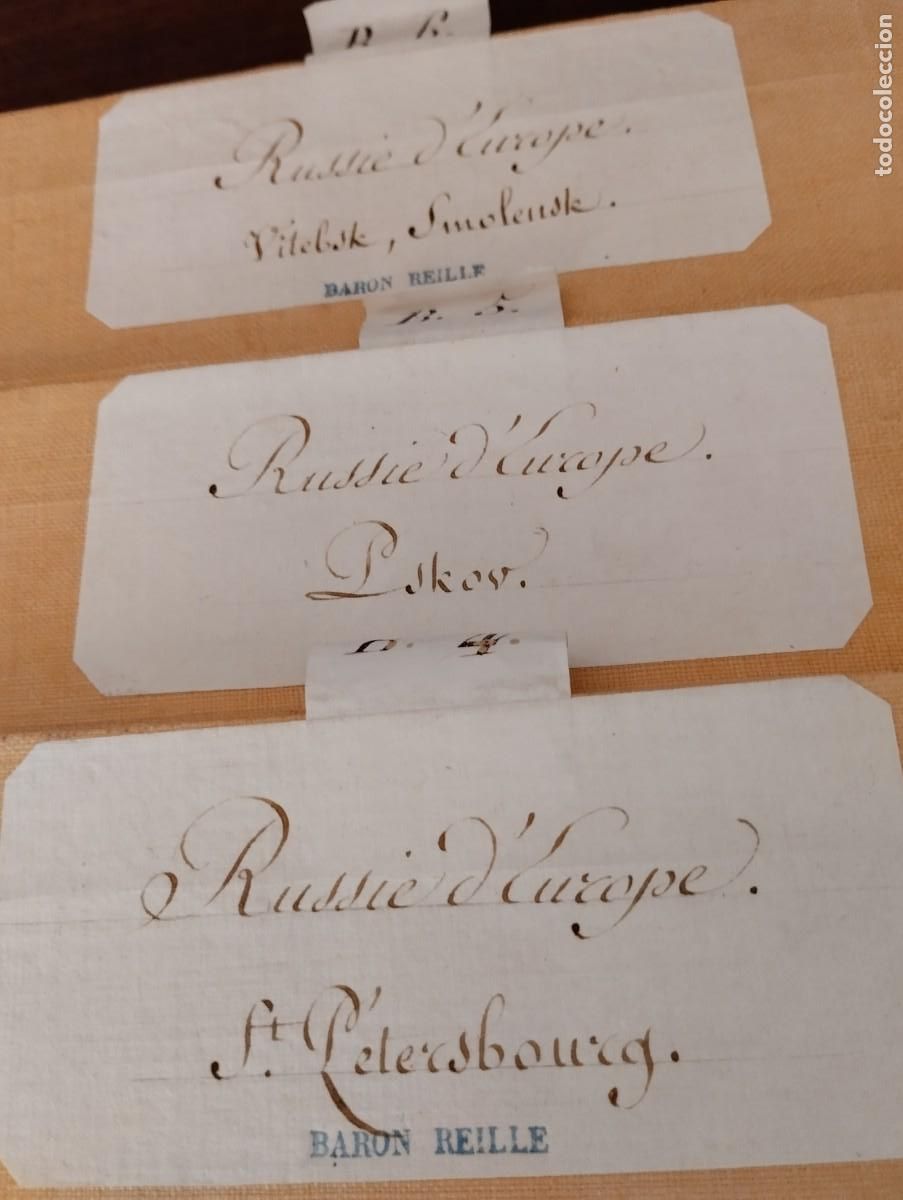 Russie d'Europe.
Vitebsk, Smolensk.
BARON REILLE
n. 5.
Russie d'Europe.
Pskov.
n. 4.
Russie d'Europe.
St. Pétersbourg.
BARON REILLE
todocoleccion